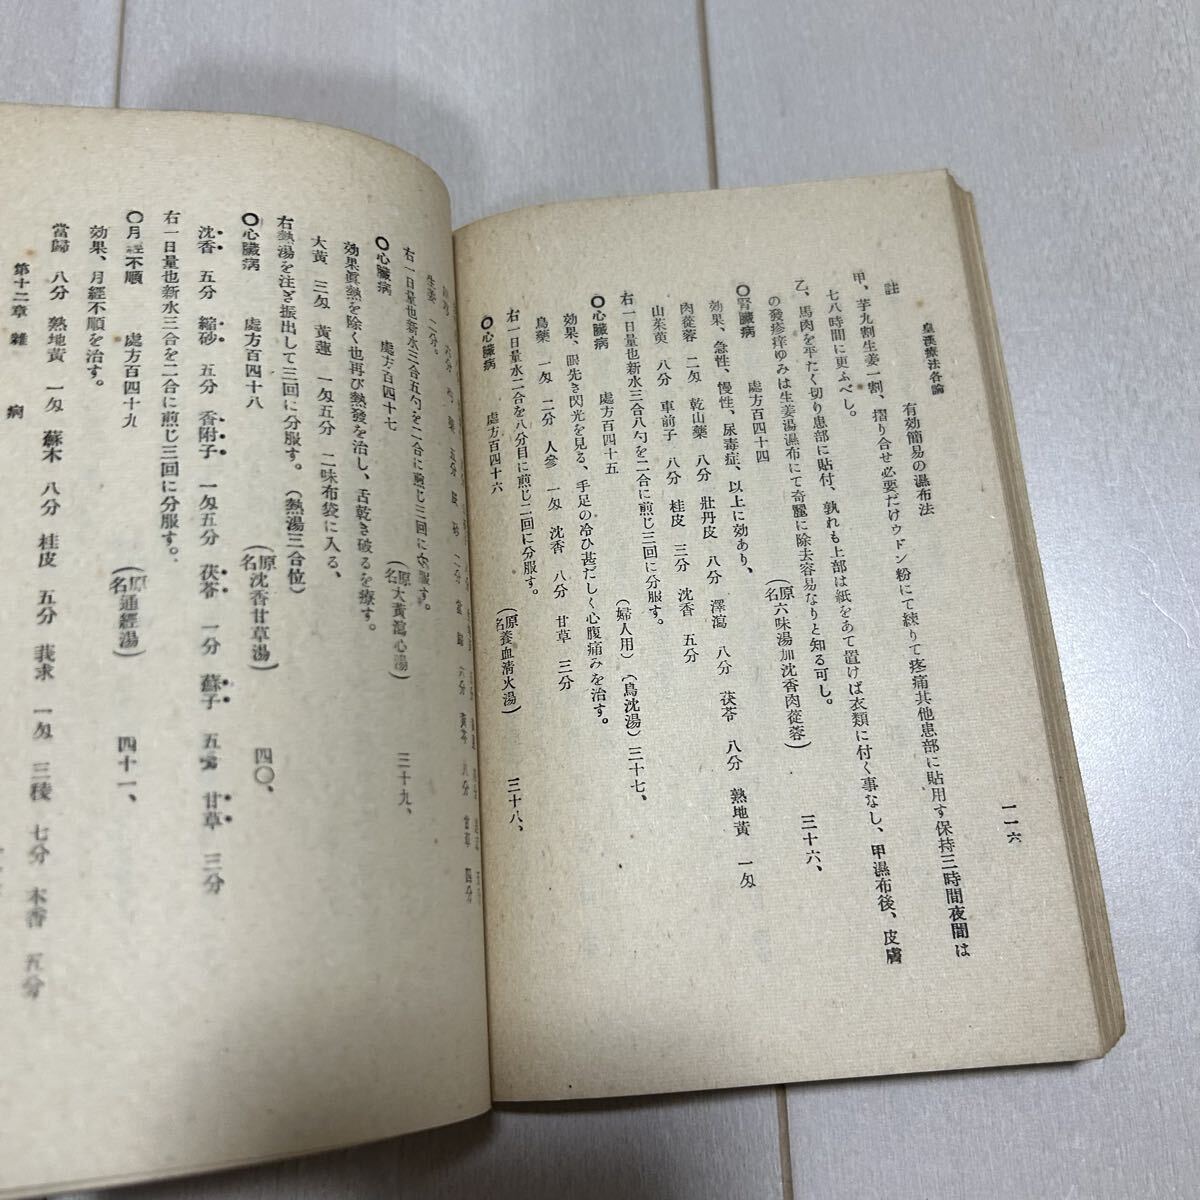 皇漢療法各論
一一六
註　有効簡易の濕布法
甲、芋九割生姜一割、摺り合せ必要だけウドン粉にて練りて疼痛其他患部に貼用す保持三時間夜間は
七八時間に更ふべし。
乙、馬肉を平たく切り患部に貼付、孰れも上部は紙をあて置けば衣類に付く事なし、甲濕布後、皮膚
の發疹痒ゆみは生姜湯濕布にて奇麗に除去容易なりと知る可し。
〇腎臓病　處方百四十四　（原名六味湯加沈香肉蓯蓉）　三十六、
効果、急性、慢性、尿毒症、以上に効あり、
肉蓯蓉　二匁　乾山藥　八分　壯丹皮　八分　澤瀉　八分　茯苓　八分　熟地黄　一匁
山茱萸　八分　車前子　八分　桂皮　三分　沈香　五分
右一日量也新水三合八勺を二合に煎じ三回に分服す。
〇心臓病　處方百四十五　（婦人用）（烏沈湯）三十七、
効果、眼先き閃光を見る、手足の冷ひ甚だしく心腹痛みを治す。
烏藥　一匁　二分　人參　一匁　沈香　八分　甘草　三分
右一日量水二合を八分目に煎じ二回に分服す。
〇心臓病　處方百四十六　（原名養血清火湯）　三十八、
生姜　二分。
右一日量也新水三合五勺を二合に煎じ三回に分服す。
〇心臓病　處方百四十七　（原名大黄瀉心湯）　三十九、
効果眞熱を除く也再び熱發を治し、舌乾き破るを療す。
大黄　三匁　黄蓮　一匁五分　二味布袋に入る、
右熱湯を注ぎ振出して三回に分服す。（熱湯三合位）
〇心臓病　處方百四十八　（原名沈香甘草湯）　四〇、
沈香　五分　縮砂　五分　香附子　一匁五分　茯苓　一分　蘇子　五分　甘草　三分
右一日量也新水三合を二合に煎じ三回に分服す。
〇月經不順　處方百四十九　（原名通經湯）　四十一、
効果、月經不順を治す。
當歸　八分　熟地黄　一匁　蘇木　八分　桂皮　五分　莪求　一匁　三稜　七分　木香　五分
第十二章　雜　病